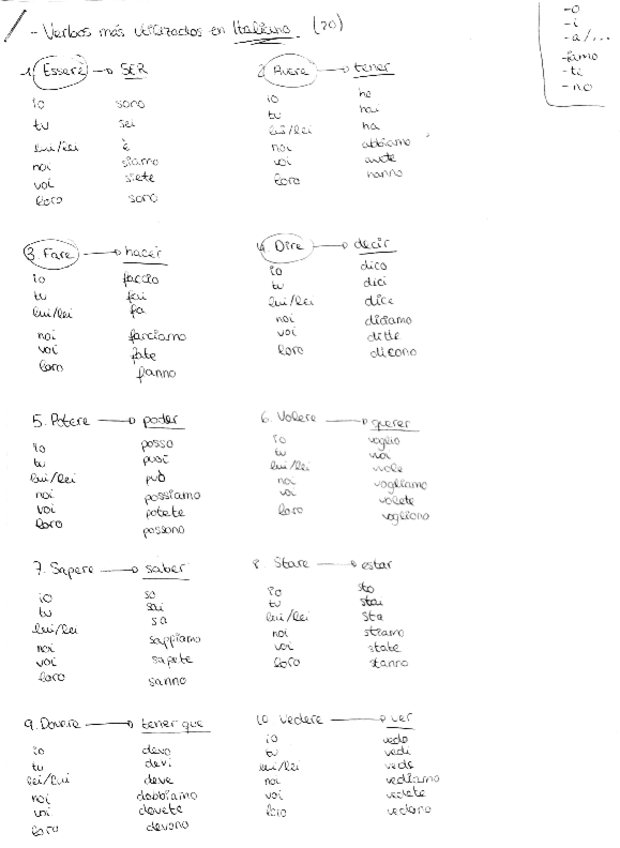 - Verbos más utilizados en Italiano. (20)
-o
-i
-a/...
-iamo
-te
-no
1. Essere → SER
io sono
tu sei
lui/lei è
noi siamo
voi siete
loro sono
2. Avere → tener
io ho
tu hai
lui/lei ha
noi abbiamo
voi avete
loro hanno
3. Fare → hacer
io faccio
tu fai
lui/lei fa
noi facciamo
voi fate
loro fanno
4. Dire → decir
io dico
tu dici
lui/lei dice
noi diciamo
voi ditte
loro dicono
5. Potere → poder
io posso
tu puoi
lui/lei può
noi possiamo
voi potete
loro possono
6. Volere → querer
io voglio
tu vuoi
lui/lei vuole
noi vogliamo
voi volete
loro vogliono
7. Sapere → saber
io so
tu sai
lui/lei sa
noi sappiamo
voi sapete
loro sanno
8. Stare → estar
io sto
tu stai
lui/lei sta
noi stiamo
voi state
loro stanno
9. Dovere → tener que
io devo
tu devi
lei/lui deve
noi dobbiamo
voi dovete
loro devono
10 Vedere → ver
io vedo
tu vedi
lui/lei vede
noi vediamo
voi vedete
loro vedono